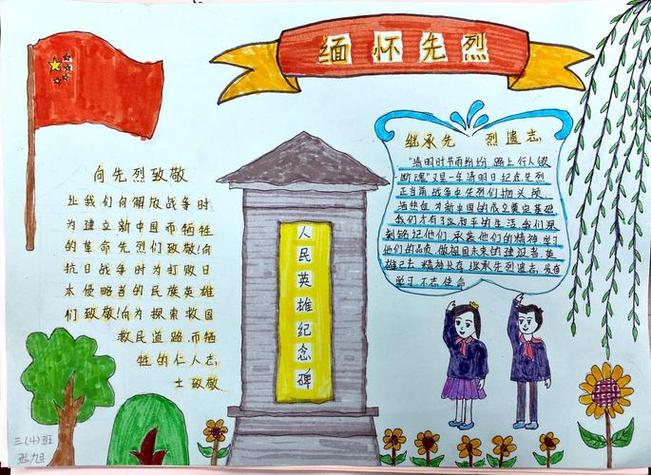 缅怀先烈
向先烈致敬
让我们向解放战争时
为建立新中国而牺牲
的革命先烈们致敬!向
抗日战争时为打败日
本侵略者的民族英雄
们致敬!向为探索救国
救民道路而牺
牲的仁人志
士致敬
人民英雄纪念碑
继承先烈遗志
"清明时节雨纷纷 路上行人欲
断魂"又是一年清明日 纪念先烈
正当时 战争中先烈们抛头颅
洒热血 才新中国的成立奠定基础
我们才有了这和平的生活,我们要
刻铭记他们 承袭他们的精神 学习
他们的品质 做祖国未来的建设者,英
雄已去 精神长存 继承先烈遗志,发奋
学习 不忘使命
三(4)班
张旭